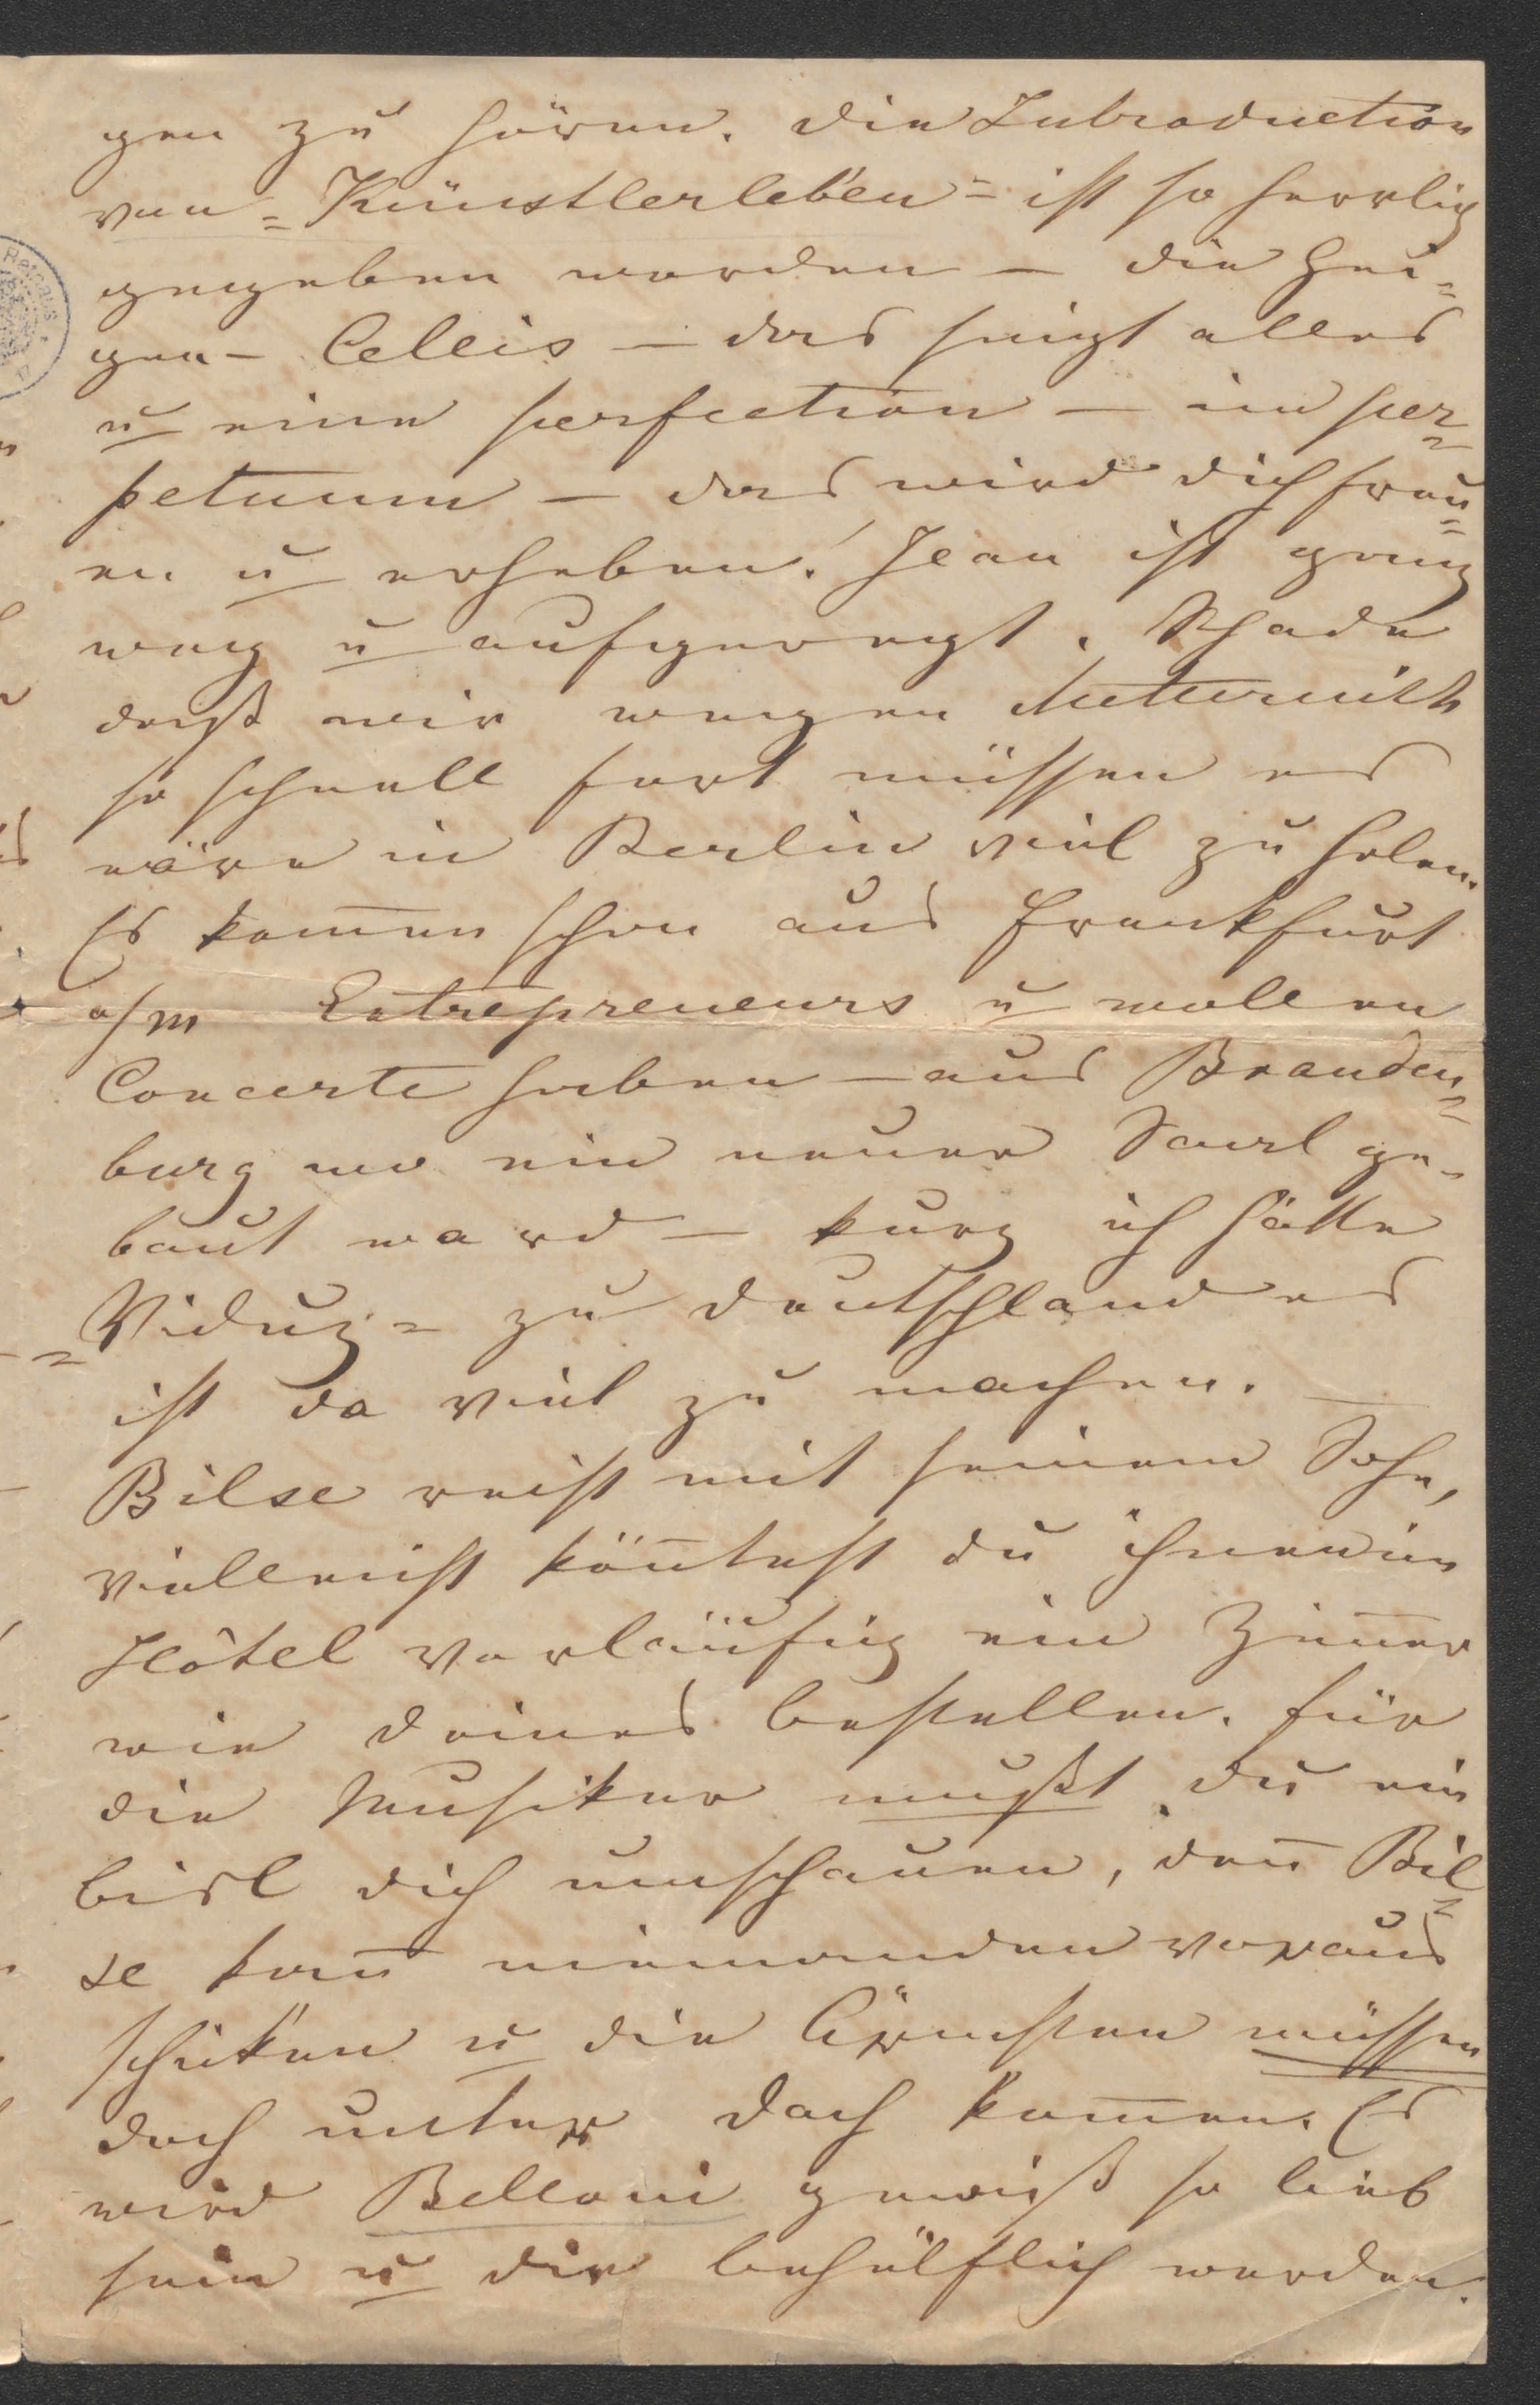 gen zu hören. Die Introduction
von "Künstlerleben" ist so herrlig
gegeben worden – die Gei=
gen – Cellis – das singt alles
u eine perfection – im per=
petuum – das wird dich freu=
en u erheben! Jean ist ganz
weg u aufgeregt. Schade
daß wir wegen Metternich
so schnell fort müssen es
wäre in Berlin viel zu holen.
Es kom̅en schon aus Frankfurt
a/m Entrepreneurs u wollen
Concerte haben – aus Branden=
burg wo ein neuer Saal ge=
baut ward – kurz ich hätte
"Viduz" zu Deutschland es
ist da viel zu machen. –
Bilse reist mit seinem Sohn,
vielleicht kön̅test du ihnen im
Hôtel vorläufig ein Zim̅er
wie deines bestellen. Für
die Musiker mußt du ein
bisl dich umschauen, den̅ Bil=
se kan̅ niemanden voraus
schicken u die Ärmsten müssen
doch unter Dach kom̅en. Es
wird Belloni gewiß so lieb
sein u dir behülflich werden.
Reichs